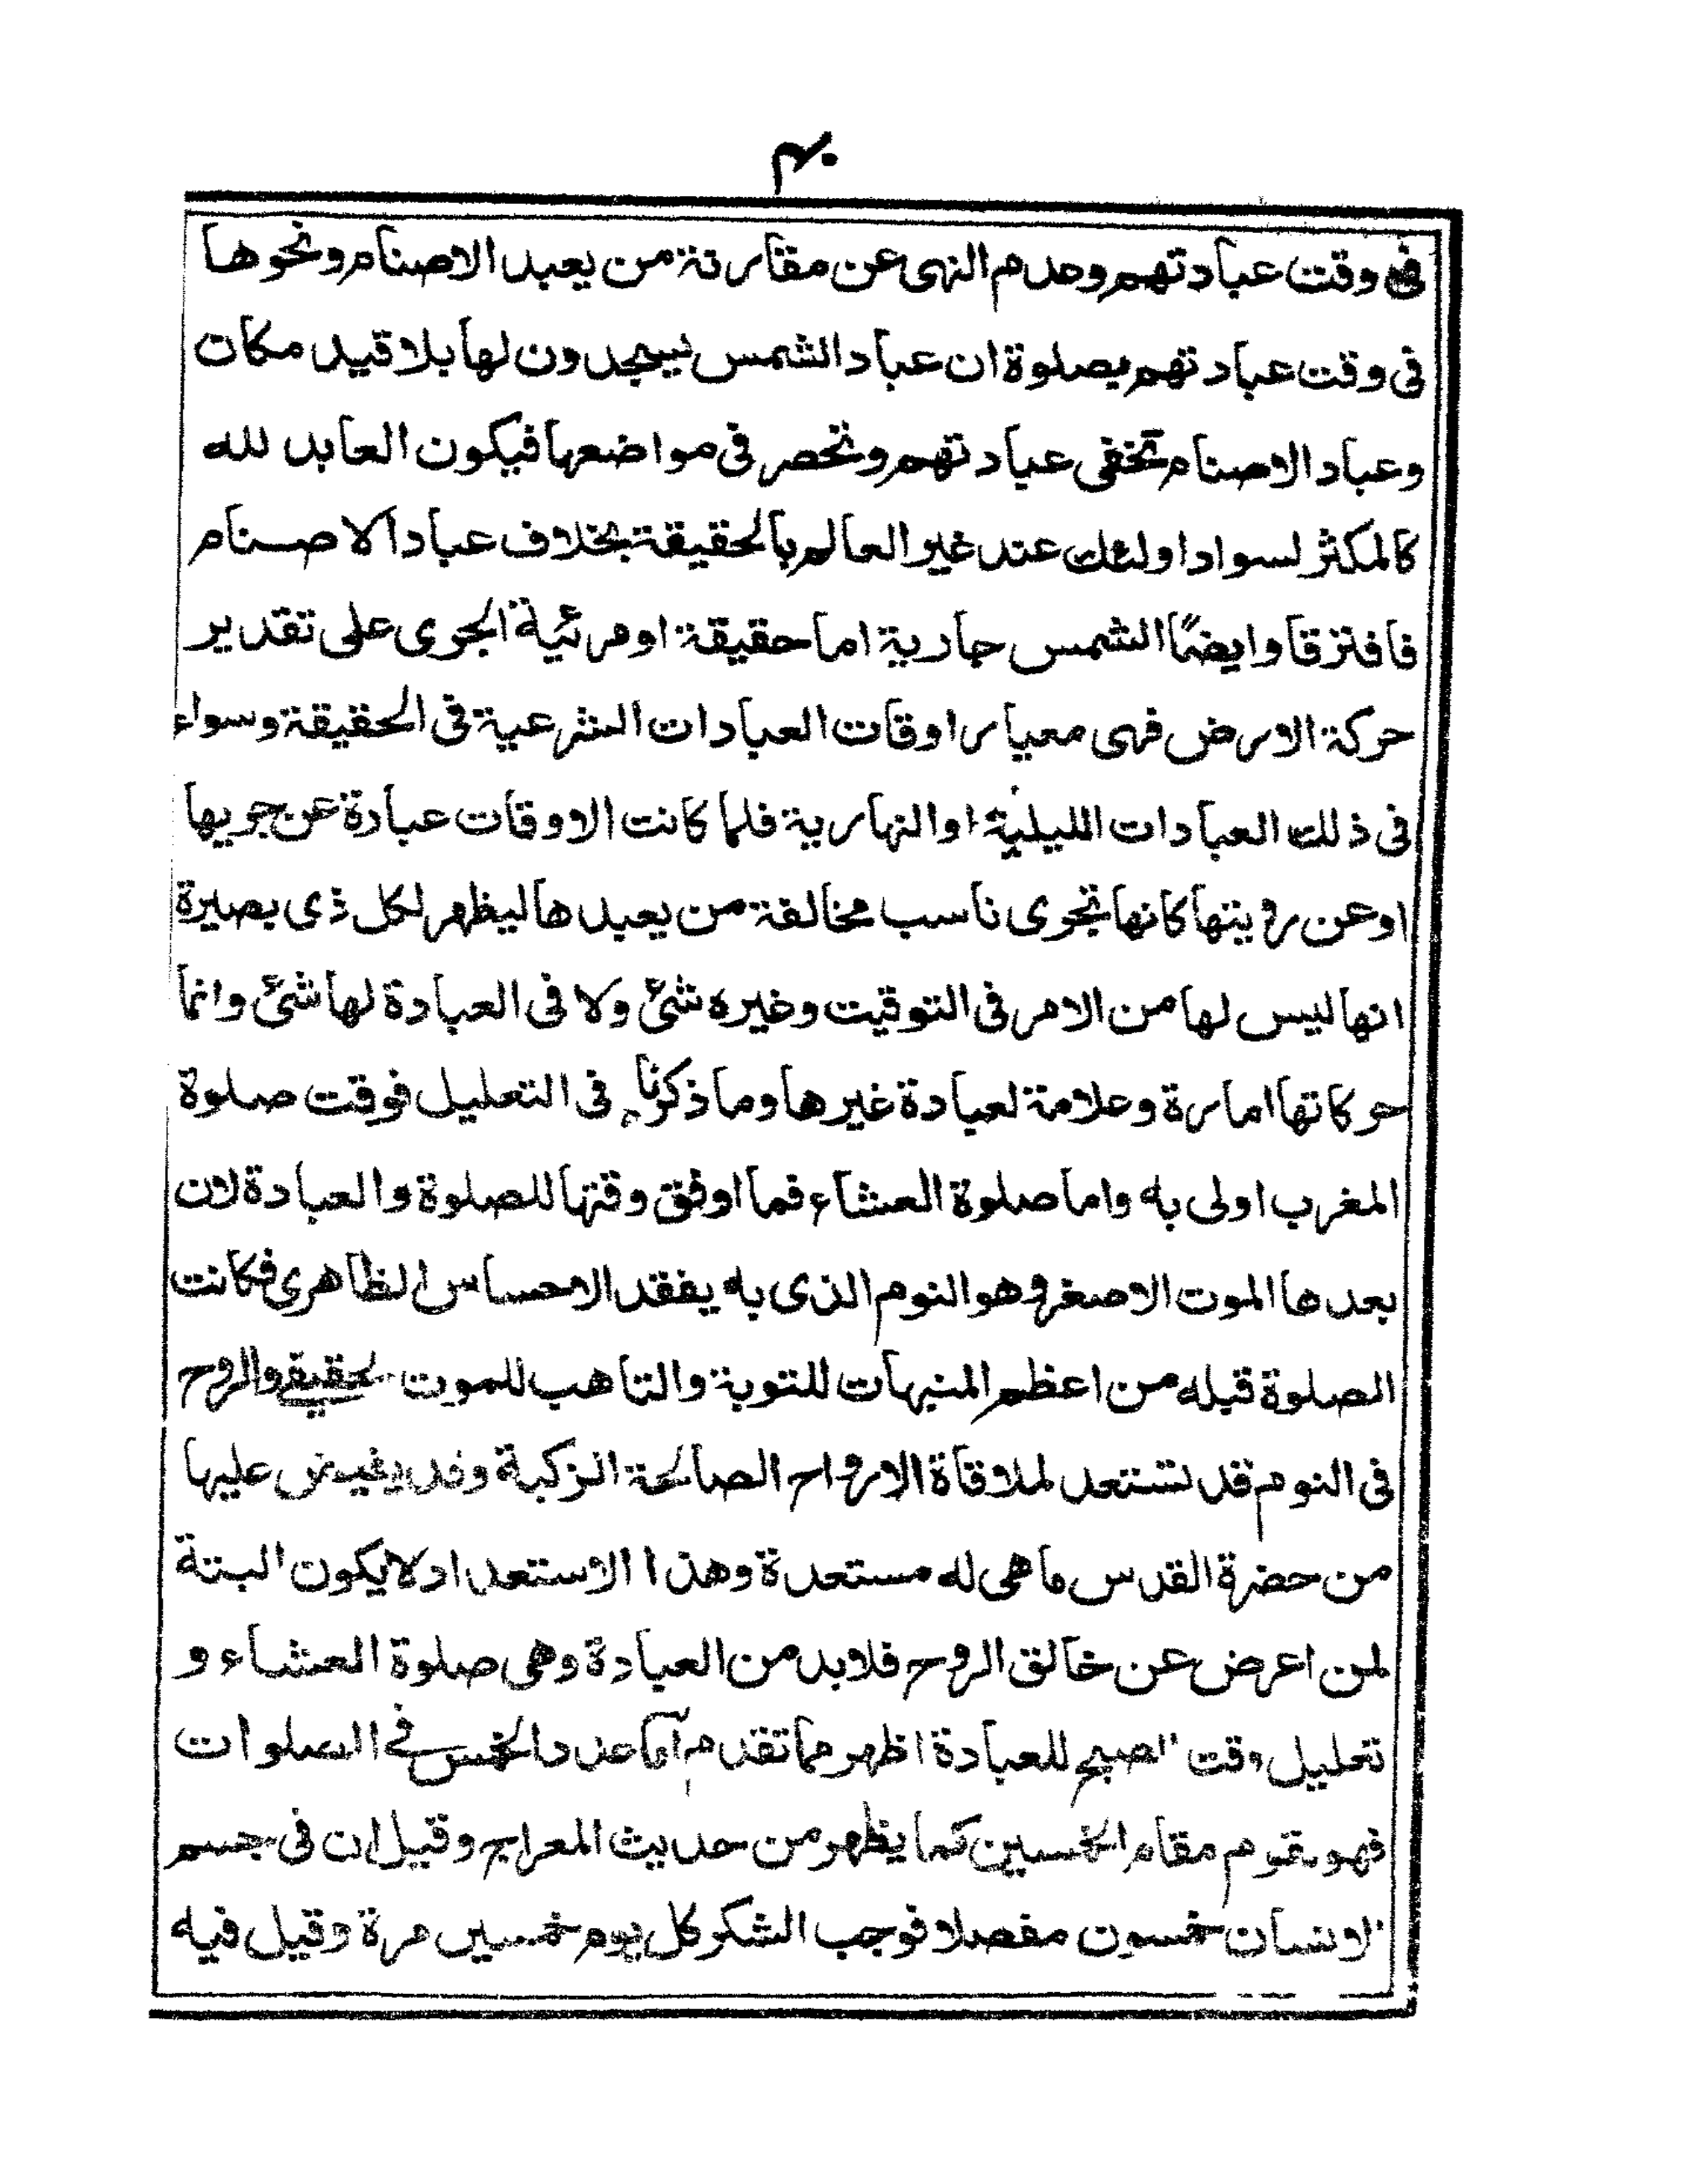 ۴۰
فى وقت عبادتهم وعدم النهى عن مقارنة من يعبد الاصنام ونحوها
فى وقت عبادتهم بصلوة ان عباد الشمس يسجدون لها بلا قيد مكان
وعباد الاصنام تخفى عبادتهم وتحصر فى مواضعها فيكون العابد لله
كالمكثر لسواد اولئك عند غير العالم بالحقيقة بخلاف عباد الاصنام
فافترقا وايضًا الشمس جارية اما حقيقة او مرئية الجرى على تقدير
حركة الارض فهى معيار اوقات العبادات الشرعية فى الحقيقة وسواء
فى ذلك العبادات الليلية او النهارية فلما كانت الاوقات عبارة عن جريها
او عن رويتها كانها تجرى ناسب مخالفة من يعبدها ليظهر لكل ذى بصيرة
انها ليس لها من الامر فى التوقيت وغيره شئ ولا فى العبادة لها شئ وانما
حركاتها امارة وعلامة لعبادة غيرها وما ذكرنا فى التعليل فوقت صلوة
المغرب اولى به واما صلوة العشاء فما اوفق وقتها للصلوة والعبادة لان
بعدها الموت الاصغر وهو النوم الذى به يفقد الاحساس الظاهرى فكانت
الصلوة قبله من اعظم المنبهات للتوبة والتاهب للموت لحقيقے والروح
فى النوم قد تستعد لملاقاة الارواح الصالحة الزكية وقد يفيض عليها
من حضرة القدس ما هى له مستعدة وهذا الاستعداد لا يكون البتة
لمن اعرض عن خالق الروح فلا بد من العبادة وهى صلوة العشاء و
تعليل وقت الصبح للعبادة اظهر مما تقدم اما عدد الخمس فے الصلوات
فهو يقوم مقام الخمسين كما يظهر من حديث المعراج وقيل ان فى جسم
الانسان خمسون مفصلا فوجب الشكر كل يوم خمسين مرة وقيل فيه